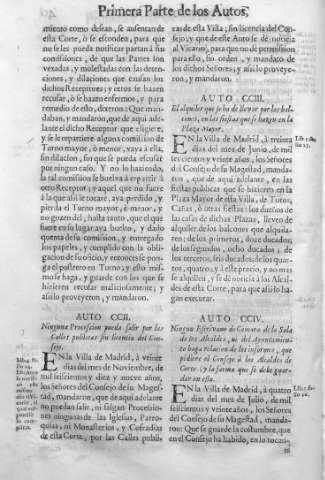 Primera Parte de los Autos,
miento como desean, se ausentan de
esta Corte, ò se esconden, para que
no se les pueda notificar partan à sus
comissiones, de que las Partes son
vexadas, y molestadas con las deten-
ciones, y dilaciones que causan los
dichos Receptores; y otros se hazen
recusar, ò se hazen enfermos, y para
remedio de esto, dixeron: Que man-
daban, y mandaron, que de aqui ade-
lante el dicho Receptor que eligiere,
y se le repartiere alguna comission de
Torno mayor, ò menor, vaya à ella,
sin dilacion, sin que se pueda escusar
por ningun caso. Y no lo haziendo,
la tal comission se buelva à repartir à
otro Receptor; y aquel que no fuere
à la que assi le tocare, aya perdido, y
pierda el Torno mayor, ò menor, y
no gozen del, hasta tanto, que el que
fuere en su lugar aya buelto, y dado
quenta de su comission, y entregado
los papeles, y cumplido con la obli-
gacion de su oficio, y entonces se pon-
ga el postrero en Torno; y esto mis-
mo se haga, y guarde con los que se
hizieren recusar maliciosamente; y
assi lo proveyeron, y mandaron.
AUTO CCII.
Ninguna Procession pueda salir por las
Calles publicas sin licencia del Conse-
jo.
EN la Villa de Madrid, à veinte
dias del mes de Noviembre, de
mil seiscientos y diez y nueve años,
los Señores del Consejo de su Mages-
tad, mandaron, que de aqui adelante
no puedan salir, ni salgan Procesio-
nes ningunas de las Iglesias, Parro-
quias, ni Monasterios, y Cofradias
de esta Corte, por las Calles publi-
cas de esta Villa, sin licencia del Con-
sejo; y que de este Auto se dè noticia
al Vicario, para que no dè permission
para ello, sin orden, y mandato de
los dichos Señores; y assi lo proveye-
ron, y mandaron.
AUTO CCIII.
El alquiler que se ha de llevar por los bal-
cones, en las fiestas que se hazen en la
Plaza Mayor.
EN la Villa de Madrid, à treinta
dias del mes de Junio, de mil
seiscientos y veinte años, los Señores
del Consejo de su Magestad, manda-
ron, que de aqui adelante, en las
fiestas publicas que se hizieren en la
Plaza Mayor de esta Villa, de Toros,
Cañas, ò otras fiestas: los dueños de
las casas de dichas Plazas, lleven de
alquiler de los balcones que alquila-
ren; de los primeros, doze ducados;
de los segundos, ocho ducados; de
los terceros, seis ducados; de los quar-
tos, quatro; y à este precio, y no mas
se alquilen, y se dè noticia à los Alcal-
des de esta Corte, para que assi lo ha-
gan executar.
AUTO CCIV.
Ningun Escrivano de Camara de la Sala
de los Alcaldes, ni del Ayuntamien-
to haga relacion de los informes, que
pidiere el Consejo à los Alcaldes de
Corte: y la forma que se debe guar-
dar en esto.
EN la Villa de Madrid, à quatro
dias del mes de Julio, de mil
seiscientos y veinte años, los Señores
del Consejo de su Magestad, manda-
ron: Que se guarde la costumbre, que
en el Consejo ha habido, en lo tocan-